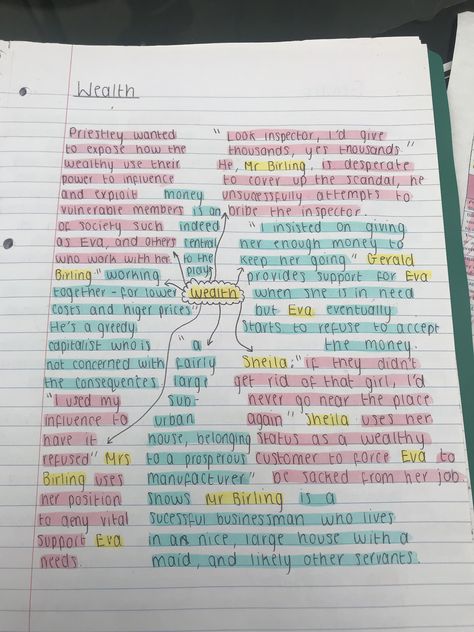 Wealth
Priestley wanted
to expose how the
wealthy use their
power to influence
and exploit
vulnerable members
of society such
as Eva, and others
who work with her
money
is an
indeed
central
to the
play
"Look inspector, I'd give
thousands, yes thousands"
He, Mr Birling, is desperate
to cover up the scandal, he
unsuccessfully attempts to
bribe the inspector.
"I insisted on giving
her enough money to
keep her going" Gerald
provides support for Eva
when she is in need
but Eva eventually
starts to refuse to accept
the money.
wealth
Birling "working
together - for lower
costs and higer prices"
He's a greedy
capitalist who is
not concerned with
the consequences
"I used my
influence to
have it
refused" Mrs
Birling uses
her position
to deny vital
support Eva
needs.
"a
fairly
large
sub-
urban
house, belonging
to a prosperous
manufacturer"
shows Mr Birling is a
sucessful businessman who lives
in a nice, large house with a
maid, and likely other servants.
Sheila: "if they didn't
get rid of that girl, I'd
never go near the place
again" Sheila uses her
status as a wealthy
customer to force Eva to
be sacked from her job